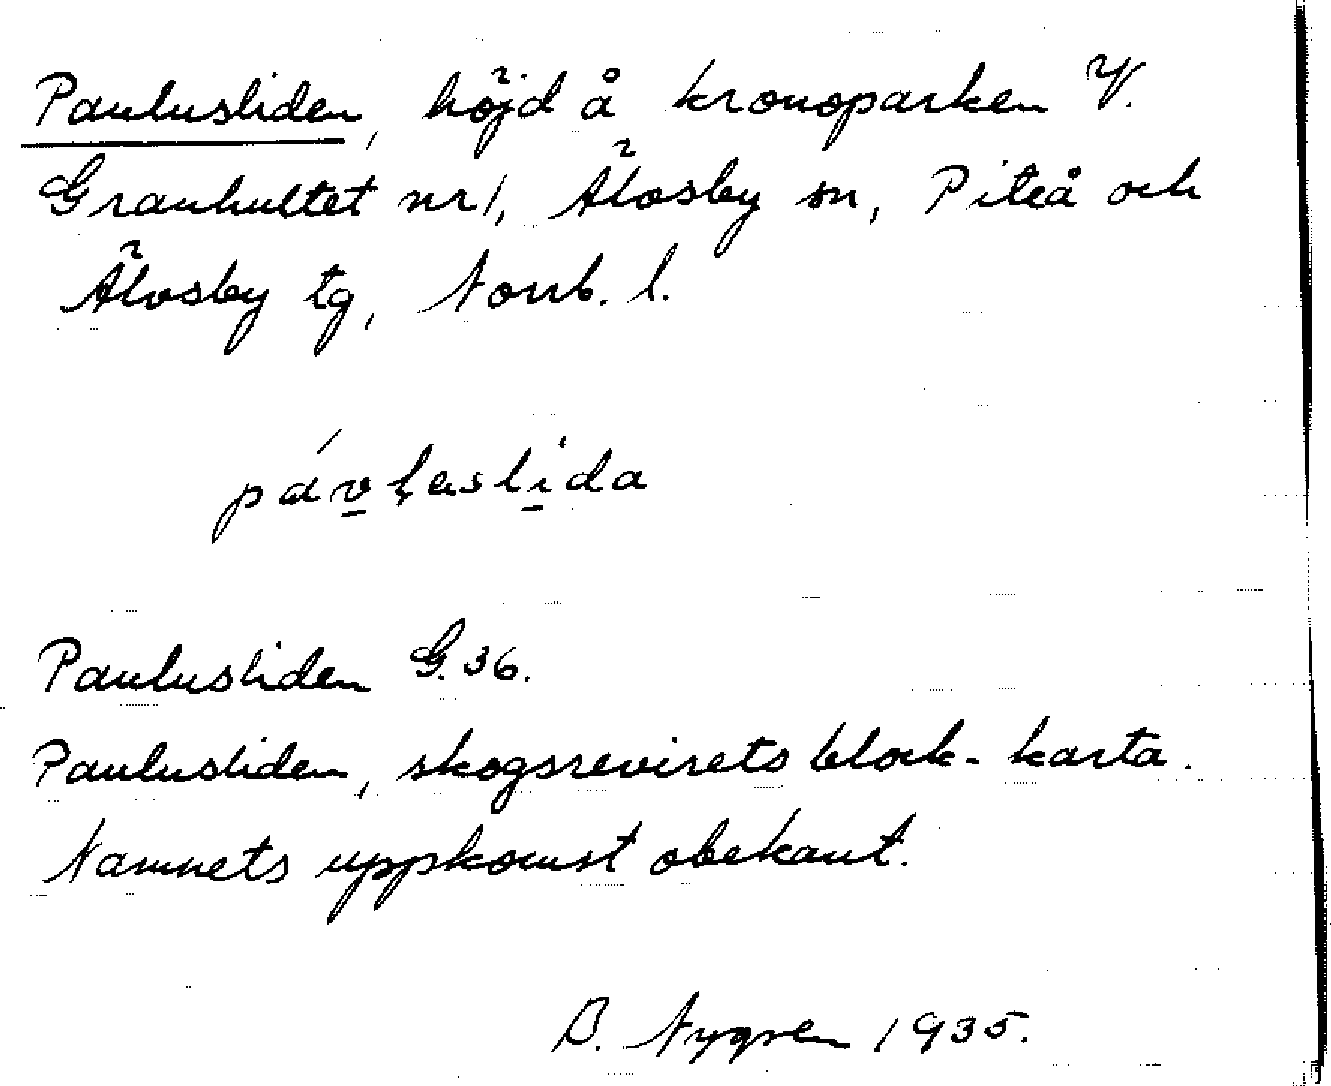 Paulusliden, höjd å kronoparken V.
Granhultet nr 1, Älvsby sn, Piteå och
Älvsby tg, Norrb. l.
pávlaslida
Paulusliden G.36.
Paulusliden, skogsrevirets block-karta.
Namnets uppkomst obekant.
B. Nygren 1935.